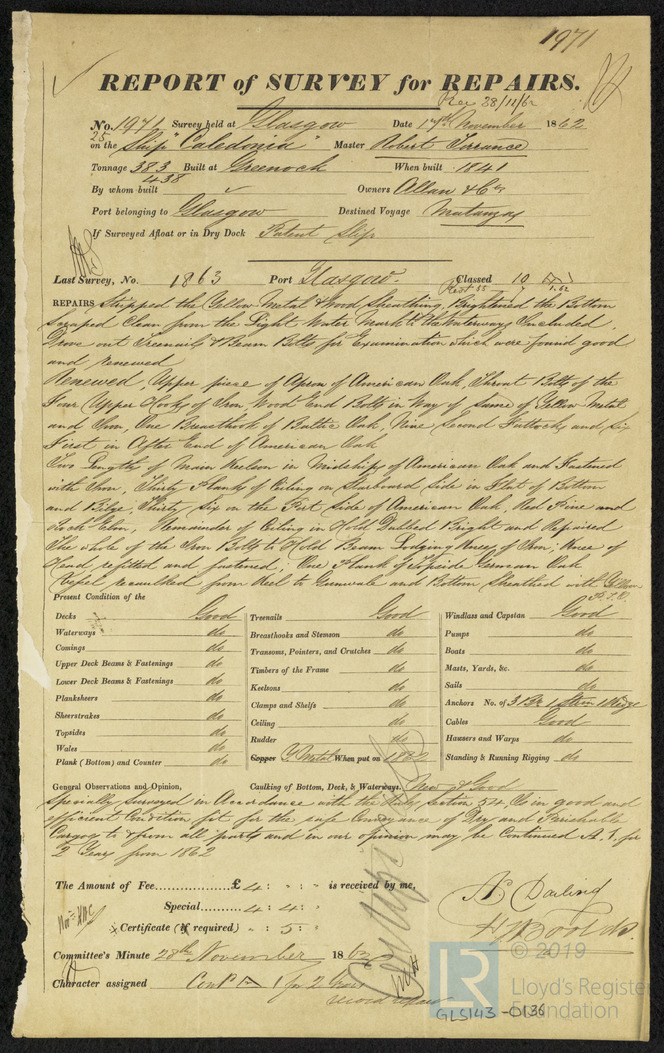 1971
REPORT of SURVEY for REPAIRS.
Rec 28/11/62
No. 1971 Survey held at Glasgow Date 17th November 1862
25
on the Ship "Caledonia" Master Robert Torrance
Tonnage 383 Built at Greenock When built 1841
438
By whom built Owners Allan & Co
Port belonging to Glasgow Destined Voyage Matanzas
If Surveyed Afloat or in Dry Dock Patent Slip
Last Survey, No. 1863 Port Glasgow. Classed 10
REPAIRS Stripped the Yellow Metal & Wood Sheathing, Brightened the Bottom
Scraped Clean from the Light Water Mark to the Waterways Included.
Drove out Treenails & Beam Bolts for Examination which were found good
and renewed
Renewed, Upper piece of Apron of American Oak, Throat Bolts of the
Four Upper Hooks of Iron, Wood End Bolts in Way of Same of Yellow Metal
and Iron, One Breasthook of Baltic Oak, Nine Second Futtocks and Six
First in After End of American Oak
Two Lengths of Main Keelson in Midships of American Oak and Fastened
with Iron, Thirty Planks of Ceiling on Starboard Side in Flat of Bottom
and Bilge, Thirty Six in the Port Side of American Oak, Red Pine and
Rock Elm, Remainder of Ceiling in Hold Dubbed Bright and Repaired
The whole of the Iron Bolts to Hold Beam Lodging Knees of Iron; Knee of
Head refitted and fastened, One Plank of Topside German Oak
Vessel recaulked from Keel to Gunwale and Bottom Sheathed with Yellow
P.T.O.
Present Condition of the
Decks Good Treenails Good Windlass and Capstan Good
Waterways do Breasthooks and Stemson do Pumps do
Comings do Transoms, Pointers, and Crutches do Boats do
Upper Deck Beams & Fastenings do Timbers of the Frame do Masts, Yards, &c. do
Lower Deck Beams & Fastenings do Keelsons do Sails do
Planksheers do Clamps and Shelfs do Anchors No. of 3 Br 1 Strm 1 Kedge
Sheerstrakes do Ceiling do Cables Good
Topsides do Rudder do Hawsers and Warps do
Wales do Copper Y. Metal When put on 1862 Standing & Running Rigging do
Plank (Bottom) and Counter do
General Observations and Opinion, Caulking of Bottom, Deck, & Waterways, New & Good
Specially Surveyed in Accordance with the Rules, section 54. Is in good and
efficient Condition, fit for the safe Conveyance of Dry and Perishable
Cargoes to & from all parts and in our opinion may be Continued A. 1. for
2 Years from 1862
The Amount of Fee £ 4 : " : " is received by me,
Special 4 : 4 : "
Certificate (if required) " : 5 : "
A. Darling
Committee's Minute 28th November 1862
Character assigned Cont A 1 for 2 Years
record repair
LR
© 2019
Lloyd's Register
Foundation
GLS143-0136